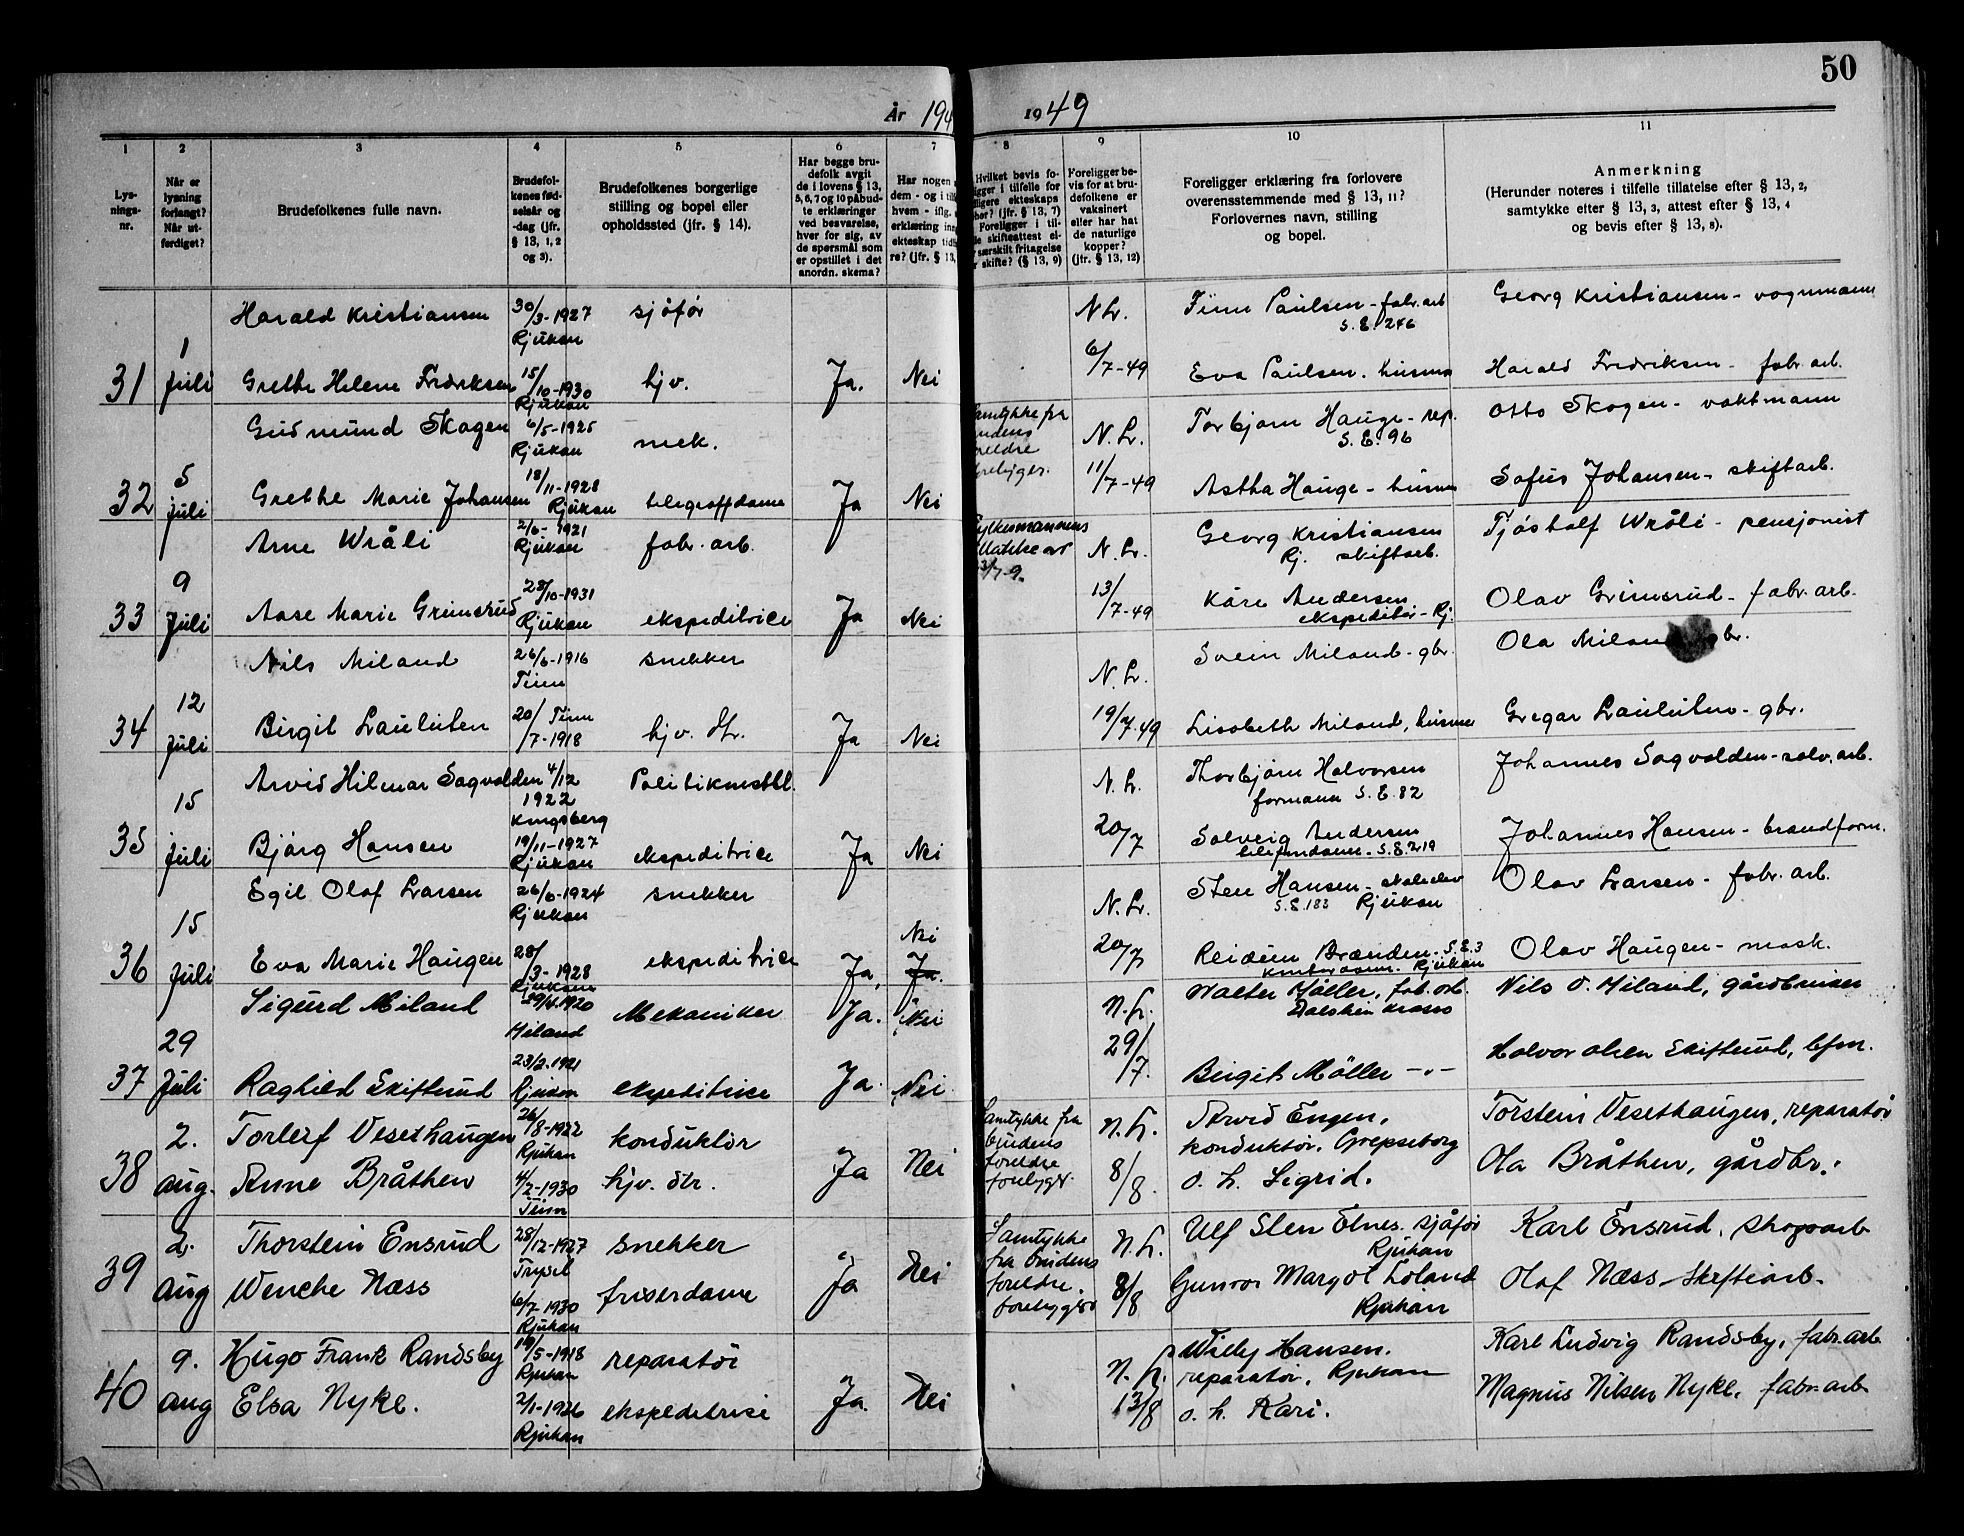 50
År 194
1949
1
2
3
4
5
6
7
8
9
10
11
Lys-
nings-
nr.
Når er
lysning
forlangt?
Når ut-
ferdiget?
Brudefolkenes fulle navn.
Brudefol-
kenes fød-
selsår og
-dag (jfr.
§ 13, 1, 2
og 3).
Brudefolkenes borgerlige
stilling og bopel eller
opholdssted (jfr. § 14).
Har begge bru-
defolk avgit
de i lovens § 13,
5, 6, 7 og 10 påbud-
te erklæringer
ved besvarelse,
hver for sig, av
de spørsmål som
er opstillet i det
anordn. skema?
Har nogen
dem - og i til
hvem - iflg.
erklæring inn
ekteskap tidl
re? (jfr. § 13,
Hvilket bevis fo-
ligger i tilfelle for
ligere ekteskaps
hør? (jfr. § 13, 7)
Foreligger i til-
le skifteattest el-
særskilt fritagelse
r skifte? (§ 13, 9)
Foreligger be-
vis for at bru-
defolkene er
vaksinert
eller har hat
de naturlige
kopper?
(jfr. § 13, 12)
Foreligger erklæring fra forlovere
overensstemmende med § 13, 11?
Forlovernes navn, stilling
og bopel.
Anmerkning
(Herunder noteres i tilfelle tillatelse efter § 13, 2,
samtykke efter § 13, 3, attest efter § 13, 4
og bevis efter § 13, 8).
31
1
Juli
Harald Kristiansen 30/3-1927 Rjukan sjåfør
N Lr. Finn Paulsen - fabr.arb S.E. 246 Georg Kristiansen - vognmann
Grethe Helene Fredriksen 15/10-1930 Rjukan hjv. Ja. Nei
6/7-49 Eva Paulsen. husmo Harald Fredriksen - fabr. arb.
32
5
juli
Gudmund Skogen 6/5-1925 Rjukan mek.
Samtykke fra
brudens
foreldre
foreligger.
N. Lr. Torbjørn Hauge - rep. S.E. 96 Otto Skogen - vaktmann
Grethe Marie Johansen 18/11-1928 Rjukan telegrafdame Ja Nei
11/7-49 Astha Hauge - husmo Sofus Johansen - skiftarb.
33
9
Juli
Arne Wråli 2/6-1921 Rjukan fabr. arb.
Fylkesmannens
N. Lr. Georg Kristiansen Rj. skiftarb. Tjøstolf Wråli - pensjonist
Aase Marie Grimsrud 28/10-1931 Rjukan ekspeditrice Ja Nei
13/7-49 Kåre Andersen ekspeditør - Rj. Olav Grimsrud - fabr. arb.
34
12
juli
Nils Miland 26/6-1916 Tinn snekker
N. Lr. Svein Miland - gbr. Ola Miland gbr.
Birgit Lauleiten 20/7-1918 Tinn hjv. dtr. Ja Nei
19/7-49 Lisabeth Miland, husmo Gregar Lauleiten - gbr.
35
15
juli
Arvid Hilmar Sagvolden 4/12 1922 Kongsberg Politikonstbl.
N. Lr. Thorbjørn Halvorsen formann S.E. 82 Johannes Sagvolden - sølv.arb.
Bjørg Hansen 19/11-1927 Rjukan ekspeditrice Ja Nei
20/7 Solveig Andersen telefondame - S.E. 219 Johannes Hansen - brandform.
36
15
juli
Egil Olaf Larsen 26/6-1924 Rjukan snekker Nei
N. Lr. Sten Hansen - skoleelev S.E. 183 Rjukan Olav Larsen - fabr. arb.
Eva Marie Haugen 28/3-1928 Rjukan ekspeditrice Ja, Ja.
20/7 Reidun Brænden. S.E. 3 kontordame. Rjukan Olav Haugen - mask.
37
29
Juli
Sigurd Miland 29/4.1920 Miland Mekaniker Ja. Nei
N. Lr. Walter Møller, fab. arb. Dalskin Kraso Nils O. Miland, gårdbruker
Raghild Skiftund 23/2.1921 Rjukan ekspeditrice Ja. Nei
29/7. Birgit Møller -"- Halvor Olsen Skiftund, bfm.
38
2.
aug.
Torleif Vesethaugen 26/8-1922 Rjukan konduktør
Samtykke fra
brudens
foreldre
foreligger.
N. Lr. Arvid Engen, konduktør, Grepseborg Torstein Vesethaugen, reparatør
Anne Bråthen 4/2-1930 Tinn hjv. dtr. Ja Nei
8/8. o. h. Sigrid. Ola Bråthen, gårdbr.
39
2.
aug
Thorstein Ensrud 28/12-1927 Trysil snekker
Samtykke
fra brudens
foreldre.
foreligger
N. Lr. Ulf Sten Elnes. sjåfør Rjukan Karl Ensrud, skogsarb
Wenche Næss 6/7 1930 Rjukan friserdame Ja Nei
8/8 Gunvor Margot Loland Rjukan Olaf Næss - Skiftarb.
40
9.
aug
Hugo Frank Randsby 19/5-1918 Rjukan reparatør
N. Lr. Willy Hansen. reparatør, Rjukan Karl Ludvig Randsby, fabr.arb
Elsa Nyke. 2/1-1926 Rjukan ekspeditrice Ja. Nei
13/8 o. h. Kari. Magnus Nilsen Nyke, fabr.arb